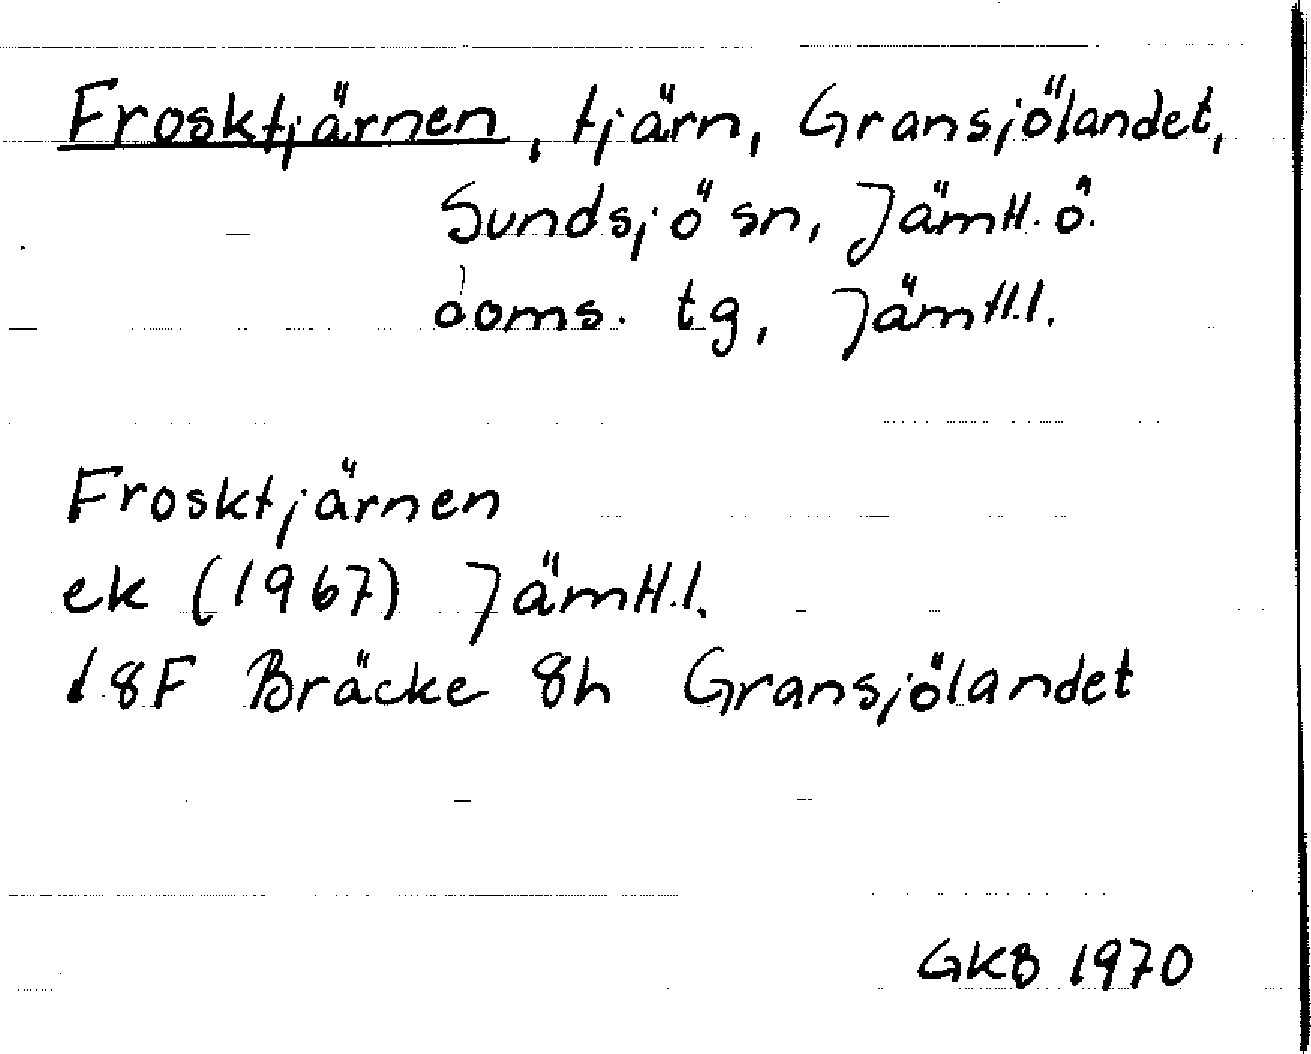 Frosktjärnen, tjärn, Gransjölandet,
Sundsjö sn, Jämtl. ö.
doms. tg, Jämtl.l.
Frosktjärnen
ek (1967) Jämtl.l.
18F Bräcke 8h Gransjölandet
GKB 1970